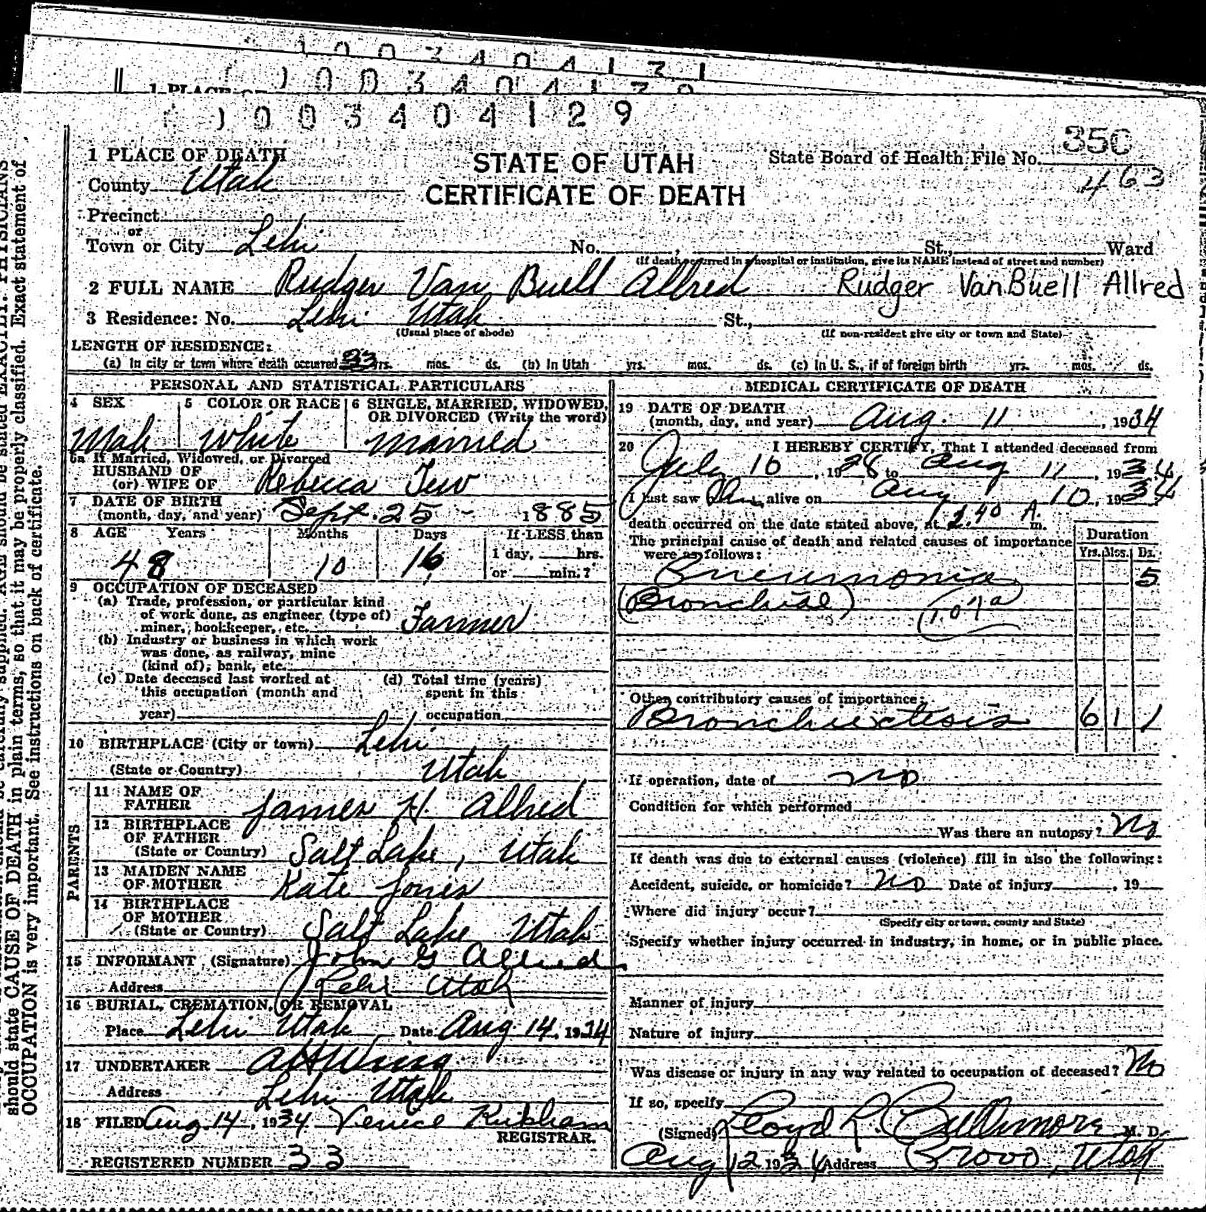 1003404131
1003404130
1 PLACE OF
1003404129
35C
463
1 PLACE OF DEATH
STATE OF UTAH
CERTIFICATE OF DEATH
State Board of Health File No.
County Utah
Precinct
or
Town or City Lehi No. St., Ward
(If death occurred in a hospital or institution, give its NAME instead of street and number)
2 FULL NAME Rudger Van Buell Allred Rudger VanBuell Allred
3 Residence: No. Lehi Utah St.,
(Usual place of abode) (If non-resident give city or town and State)
LENGTH OF RESIDENCE:
(a) In city or town where death occurred 33 yrs. mos. ds. (b) In Utah yrs. mos. ds. (c) In U. S., if of foreign birth yrs. mos. ds.
PERSONAL AND STATISTICAL PARTICULARS
4 SEX Male
5 COLOR OR RACE White
6 SINGLE, MARRIED, WIDOWED, OR DIVORCED (Write the word) Married
6a If Married, Widowed, or Divorced
HUSBAND OF
(or) WIFE OF Rebecca Tew
7 DATE OF BIRTH
(month, day, and year) Sept. 25 - 1885
8 AGE Years Months Days If LESS than
48 10 16 1 day, hrs.
or min.?
9 OCCUPATION OF DECEASED
(a) Trade, profession, or particular kind
of work done, as engineer (type of)
miner, bookkeeper, etc. Farmer
(b) Industry or business in which work
was done, as railway, mine
(kind of); bank, etc.
(c) Date deceased last worked at
this occupation (month and
year)
(d) Total time (years)
spent in this
occupation
10 BIRTHPLACE (City or town) Lehi
(State or Country) Utah
PARENTS
11 NAME OF
FATHER James H. Allred
12 BIRTHPLACE
OF FATHER
(State or Country) Salt Lake, Utah
13 MAIDEN NAME
OF MOTHER Kate Jones
14 BIRTHPLACE
OF MOTHER
(State or Country) Salt Lake Utah
15 INFORMANT (Signature) John G Allred
Address Lehi Utah
16 BURIAL, CREMATION, OR REMOVAL
Place Lehi Utah Date Aug 14, 1934
17 UNDERTAKER
Address Lehi Utah
18 FILED Aug. 14, 1934 Venice
REGISTRAR.
REGISTERED NUMBER 33
MEDICAL CERTIFICATE OF DEATH
19 DATE OF DEATH
(month, day, and year) Aug. 11, 1934
20 I HEREBY CERTIFY, That I attended deceased from
July 10, 1928 to Aug 11, 1934
I last saw him alive on Aug 10, 1934
death occurred on the date stated above, at 2.40 A. m.
The principal cause of death and related causes of importance
were as follows:
Duration
Yrs. Mos. Ds.
Pneumonia 5
(Bronchial) (107a)
Other contributory causes of importance:
Bronchiectesis 6 1 1
If operation, date of no
Condition for which performed
Was there an autopsy? No
If death was due to external causes (violence) fill in also the following:
Accident, suicide, or homicide? No Date of injury , 19
Where did injury occur?
(Specify city or town, county and State)
Specify whether injury occurred in industry, in home, or in public place.
Manner of injury
Nature of injury
Was disease or injury in any way related to occupation of deceased? No
If so, specify
(Signed) Lloyd L. Cullimore M. D.
Aug 12 1934 Address Provo, Utah
should state CAUSE OF DEATH in plain terms, so that it may be properly classified. Exact statement of
OCCUPATION is very important. See instructions on back of certificate.